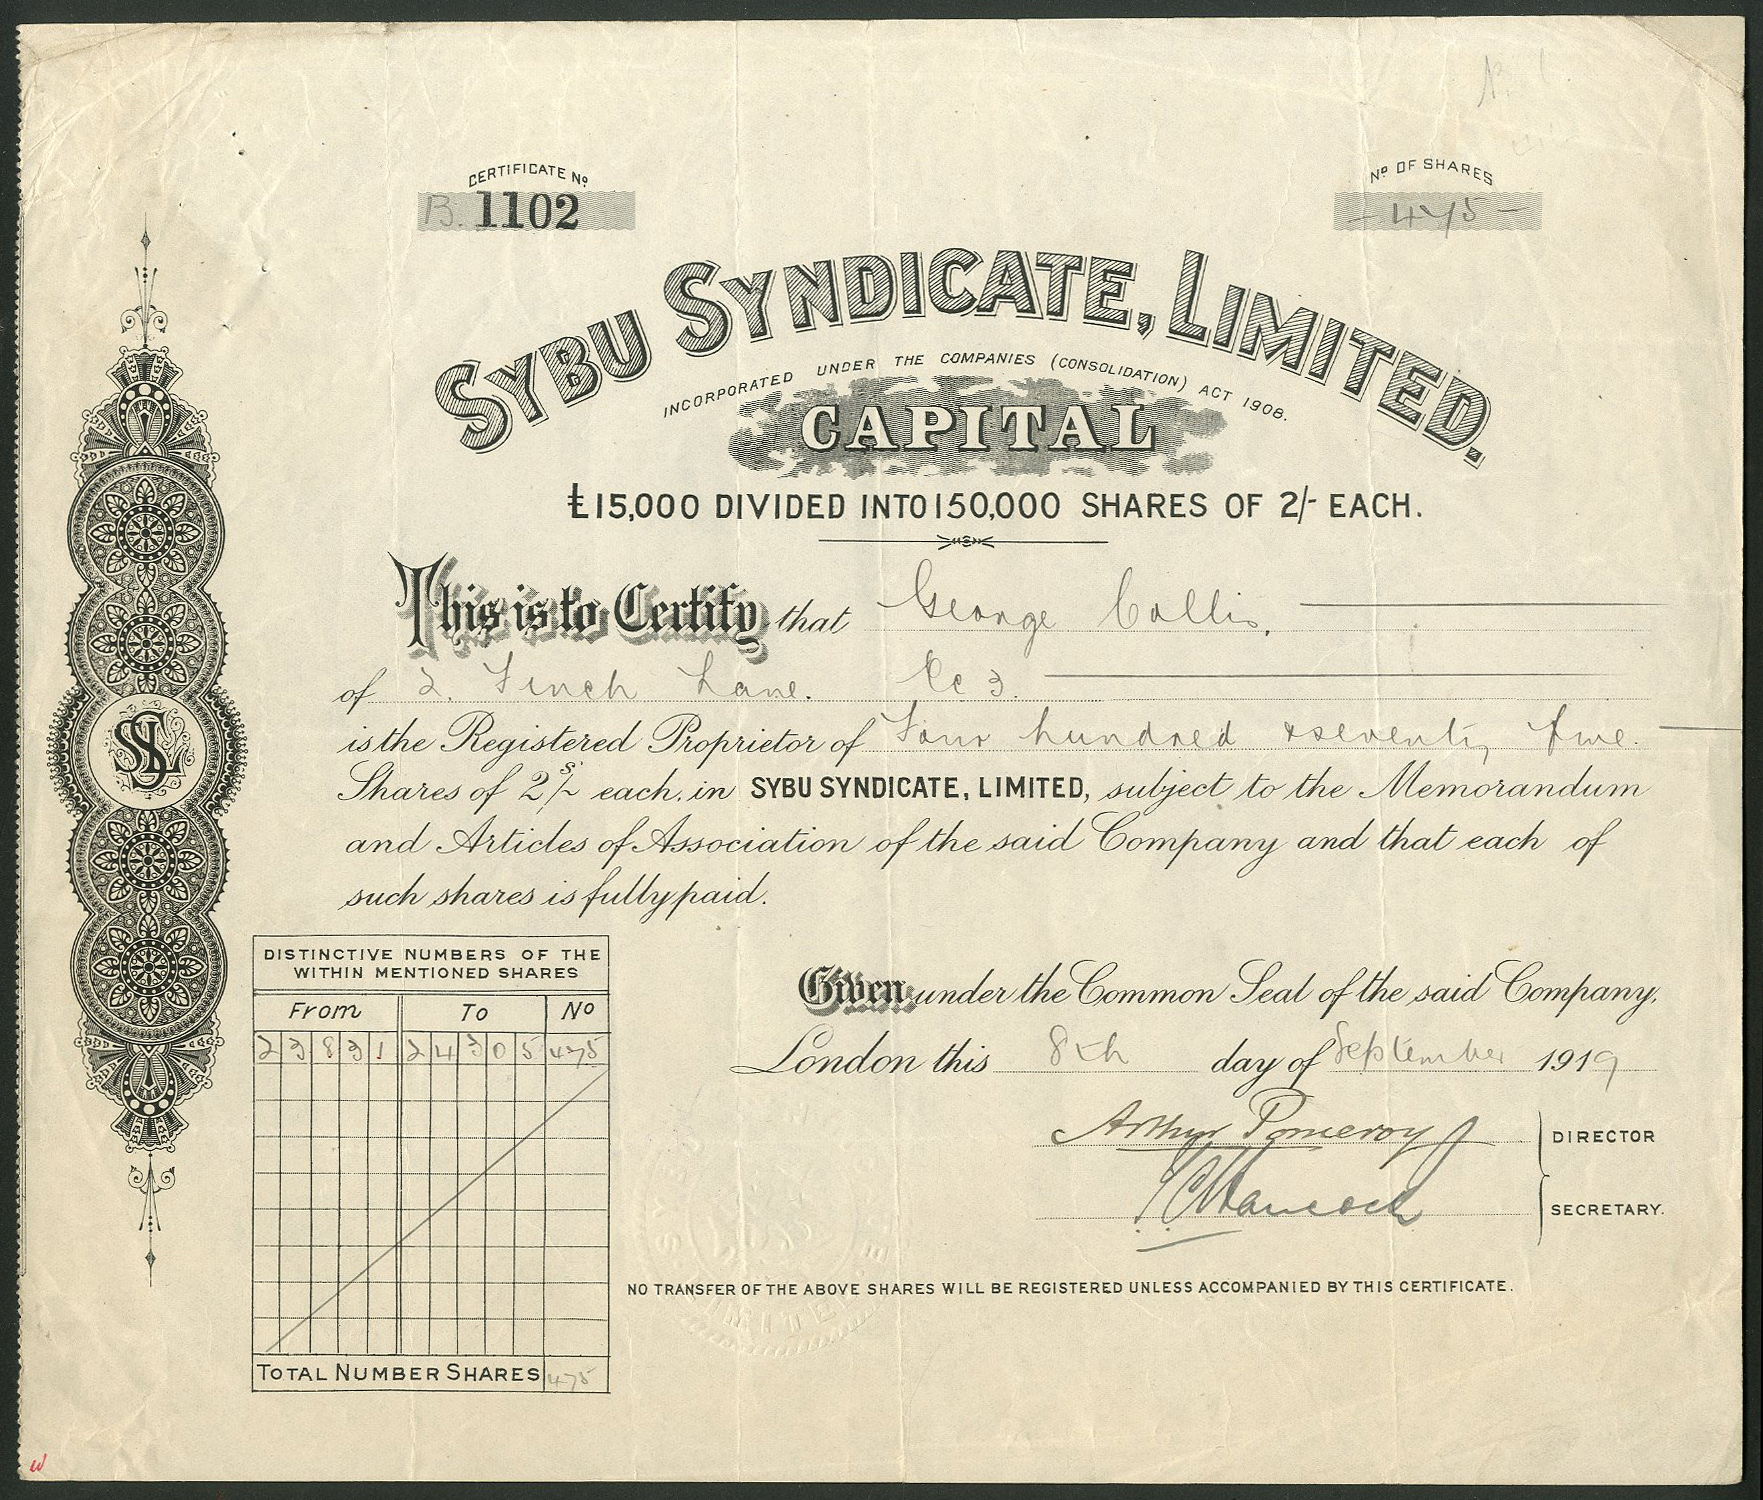 CERTIFICATE No
B. 1102
No OF SHARES
- 475 -
SYBU SYNDICATE, LIMITED.
INCORPORATED UNDER THE COMPANIES (CONSOLIDATION) ACT 1908.
CAPITAL
£15,000 DIVIDED INTO 150,000 SHARES OF 2/- EACH.
This is to Certify that George Collis.
of 2. Finch Lane. Ec 3.
is the Registered Proprietor of Four hundred & seventy five.
Shares of 2s/- each, in SYBU SYNDICATE, LIMITED, subject to the Memorandum
and Articles of Association of the said Company and that each of
such shares is fully paid.
DISTINCTIVE NUMBERS OF THE
WITHIN MENTIONED SHARES
From To No
23831 24305 475
TOTAL NUMBER SHARES 475
Given under the Common Seal of the said Company,
London this 8th day of September 1919
Arthur Pomeroy DIRECTOR
Hancock SECRETARY.
NO TRANSFER OF THE ABOVE SHARES WILL BE REGISTERED UNLESS ACCOMPANIED BY THIS CERTIFICATE.